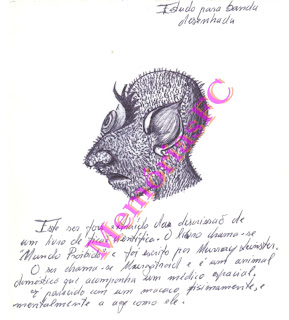 Estudo para banda
desenhada
MemóriasFC
Este ser foi extraído das descrições de
um livro de ficção científica. O livro chama-se
Mundo Proibido e foi escrito por Murray Leinster.
O ser chama-se e é um animal
doméstico que acompanha um médico espacial,
é parecido com um macaco, fisicamente, e
mentalmente a age como ele.